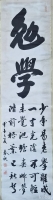 勉學
少年易老學難成
一寸光陰不可輕
未覺池塘春草夢
階前梧葉已秋聲